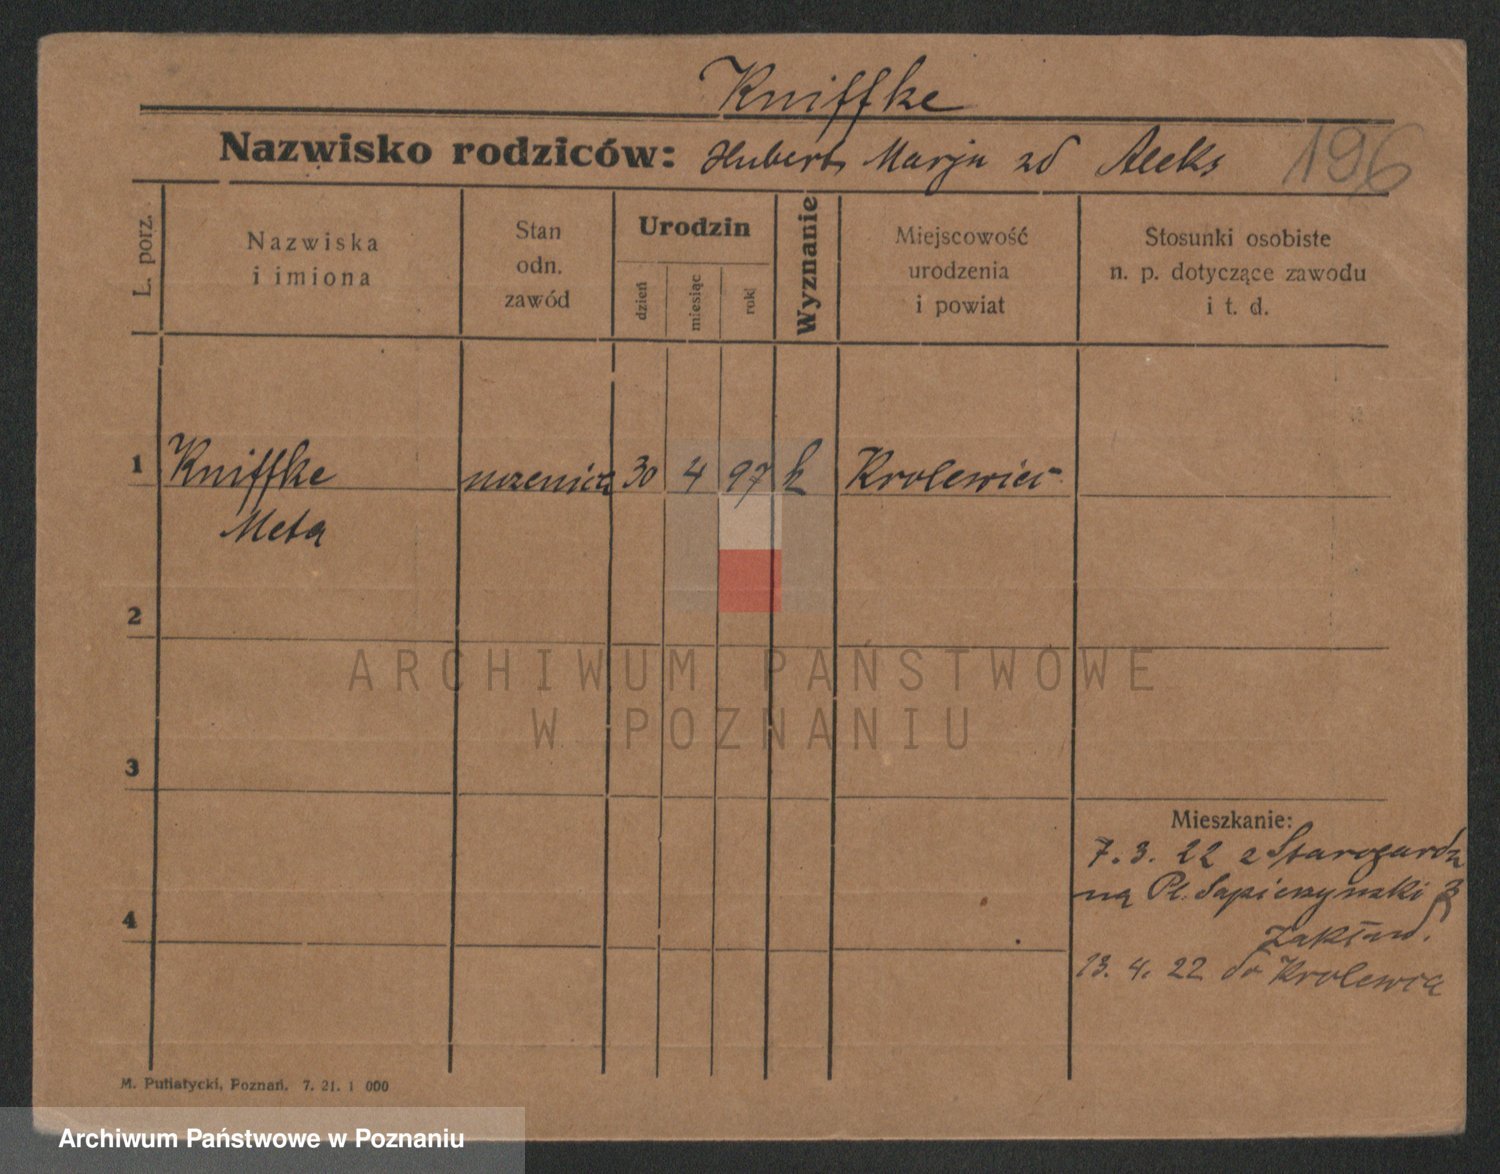 Kniffke
Nazwisko rodziców: Hubert Marja zd Aleks 196
L. porz.
Nazwiska
i imiona
Stan
odn.
zawód
Urodzin
dzień
miesiąc
rok
Wyznanie
Miejscowość
urodzenia
i powiat
Stosunki osobiste
n. p. dotyczące zawodu
i t. d.
1 Kniffke uczenica 30 4 97 k Krolewiec
Meta
2
3
4
Mieszkanie:
7. 3. 22 z Starogardu
na Pl. Sapieżynski 3
Zakład.
13. 4. 22 do Krolewca
M. Putiatycki, Poznań. 7. 21. 1 000
ARCHIWUM PAŃSTWOWE
W POZNANIU
Archiwum Państwowe w Poznaniu